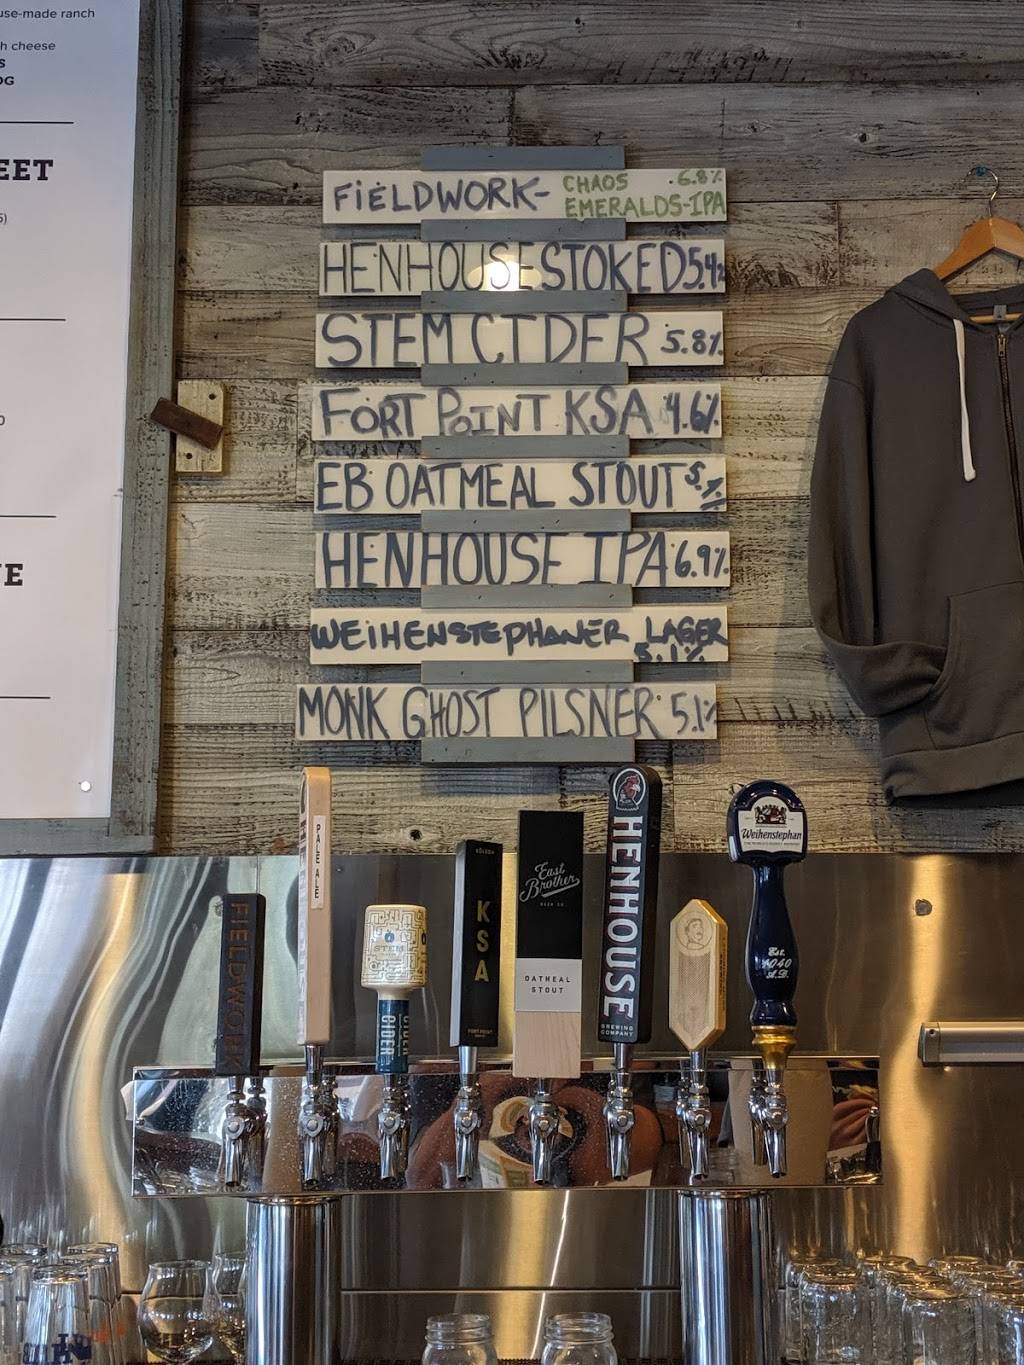 use-made ranch
h cheese
S
OG
EET
5)
E
FiELDWORK- CHAOS 6.8%
EMERALDS-IPA
HENHOUSE STOKED 5.4%
STEM CIDER 5.8%
FORT POINT KSA 4.6%
EB OATMEAL STOUT
HENHOUSE IPA 6.9%
WEIHENSTEPHANER LAGER
5.1%
MONK GHOST PILSNER 5.1%
FIELDWORK
PALE ALE
STEM
CIDER
KÖLSCH
KSA
FORT POINT
East
Brother
BEER CO.
OATMEAL
STOUT
HENHOUSE
BREWING
COMPANY
Weihenstephan
Est.
1040
A.D.